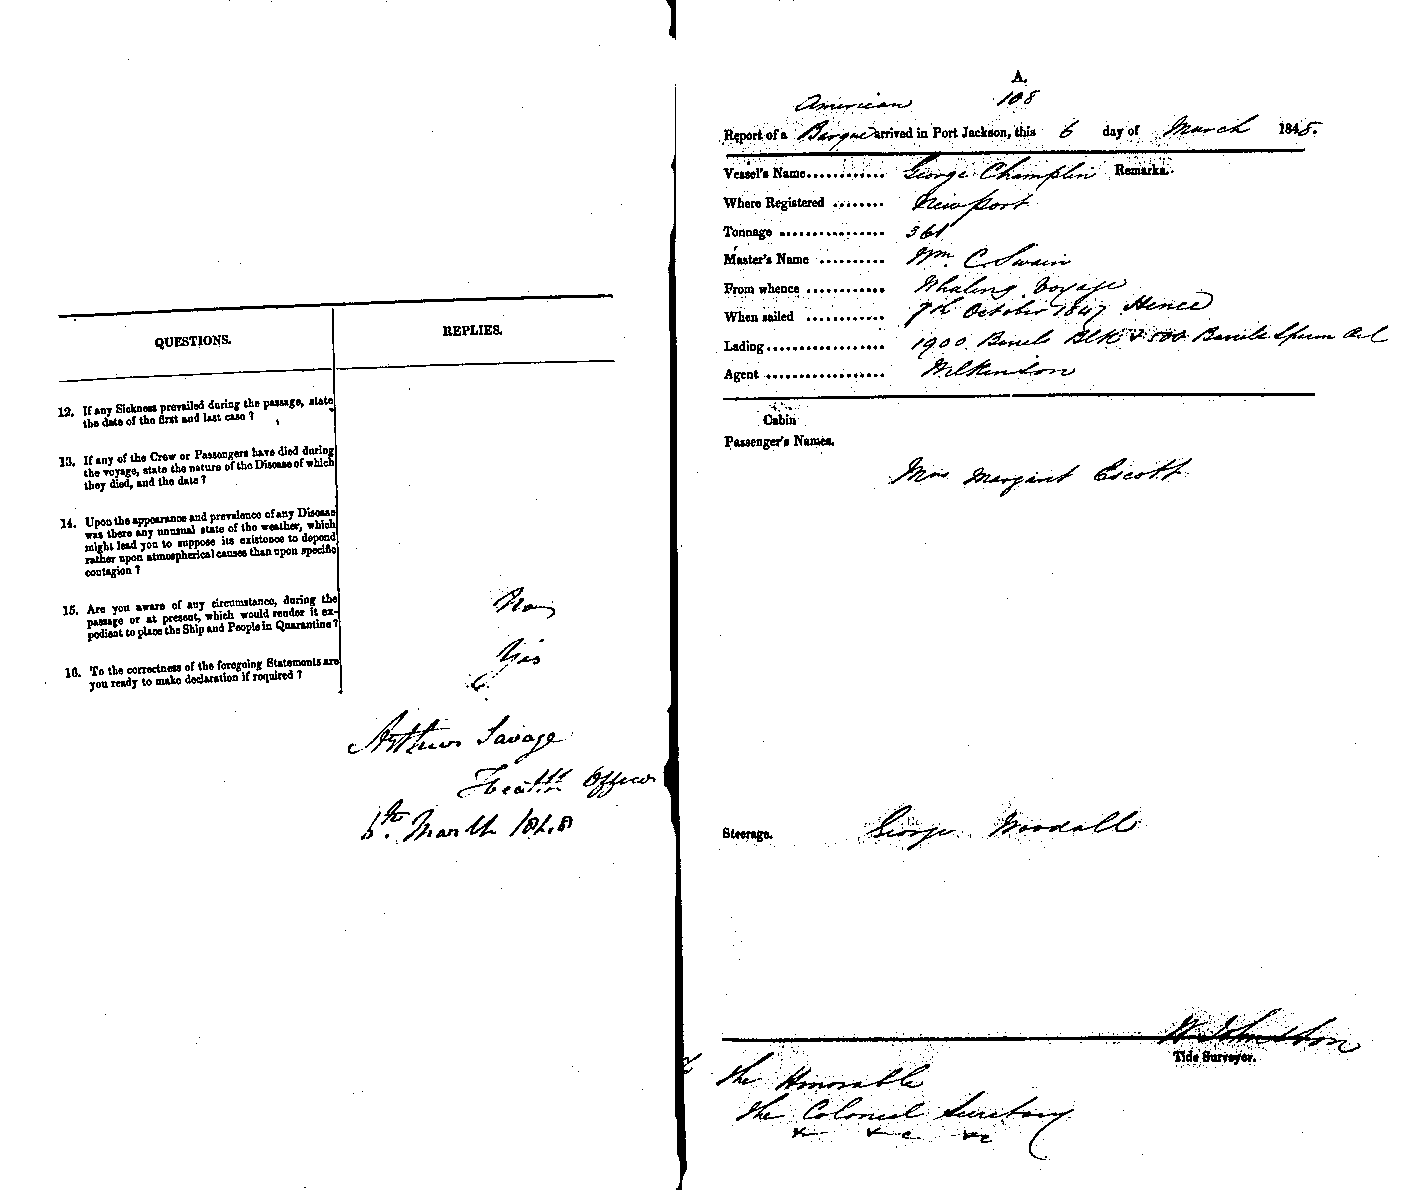 QUESTIONS.
REPLIES.
12. If any Sickness prevailed during the passage, state
the date of the first and last case ?
13. If any of the Crew or Passengers have died during
the voyage, state the nature of the Disease of which
they died, and the date ?
14. Upon the appearance and prevalence of any Disease
was there any unusual state of the weather, which
might lead you to suppose its existence to depend
rather upon atmospherical causes than upon specific
contagion ?
15. Are you aware of any circumstance, during the
passage or at present, which would render it ex-
pedient to place the Ship and People in Quarantine ?
No
16. To the correctness of the foregoing Statements are
you ready to make declaration if required ?
Yes
Arthur Savage
Health Officer
6th. March 1848
A.
American 108
Report of a Barque arrived in Port Jackson, this 6 day of March 1848.
Vessel's Name............ George Champlin Remarks.
Where Registered ........ Newport
Tonnage ................ 361
Master's Name .......... Wm. C Swain
From whence ............ Whaling Voyage
When sailed ............ 7th October 1847 Hence
Lading.................. 1900 Barrels Blk & 500 Barrels Sperm Oil
Agent .................. Wilkinson
Cabin
Passenger's Names.
Mrs Margaret Escott
Steerage. George Woodall
W Johnston
Tide Surveyor.
The Honorable
The Colonial Secretary
&c &c &c